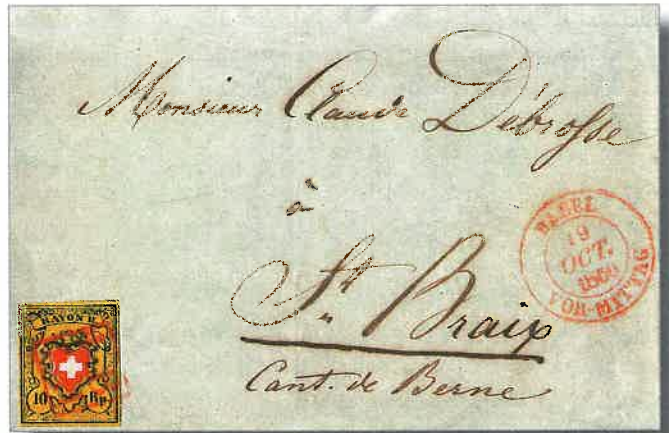 Monsieur Claude Debrosse
à
St. Braix
Cant. de Berne
BASEL
19
OCT.
VOR-MITTAG
RAYON II
10 Rp.